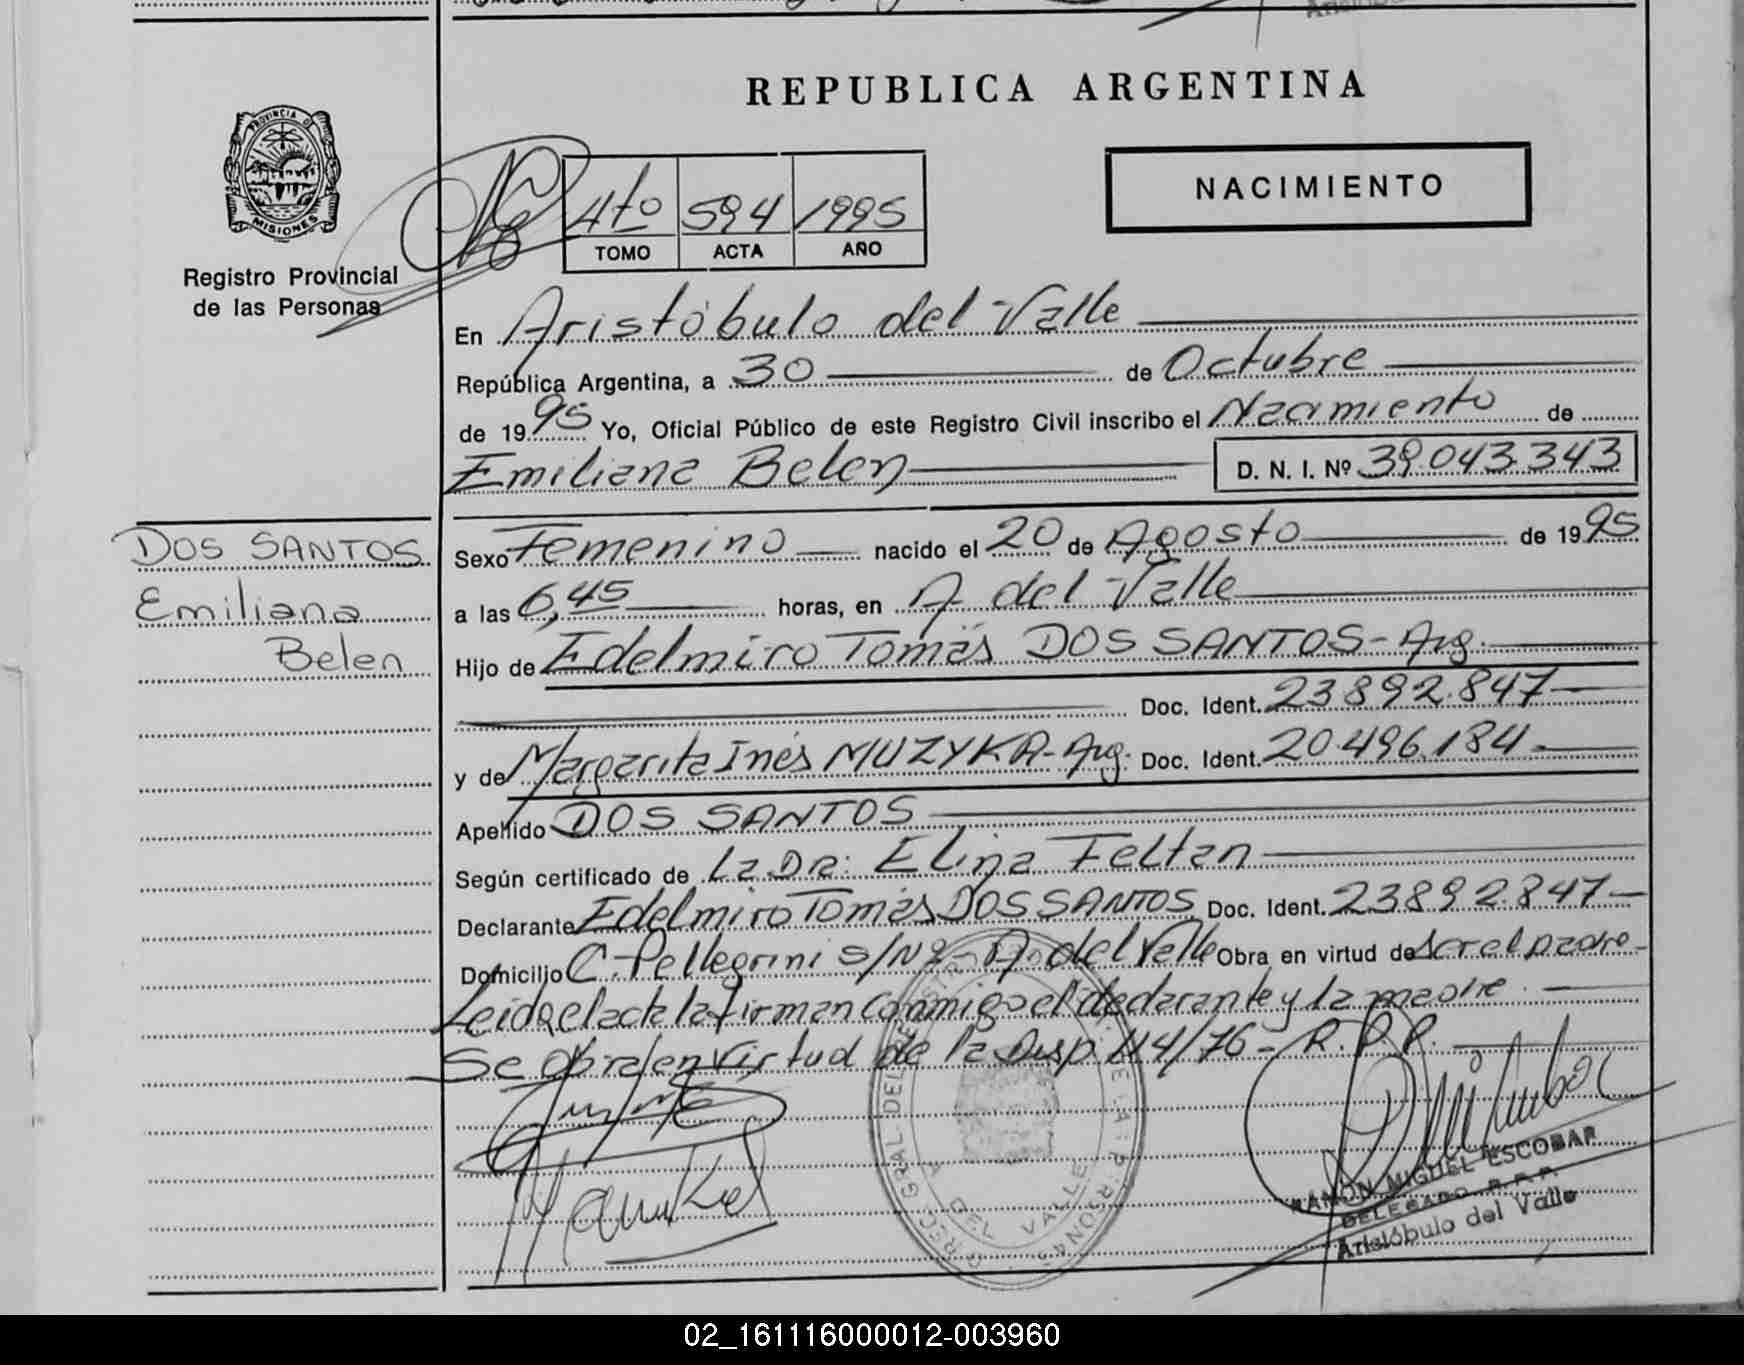 REPUBLICA ARGENTINA
PROVINCIA D
MISIONES
Registro Provincial
de las Personas
4to 594 1995
TOMO ACTA AÑO
NACIMIENTO
En Aristóbulo del Valle
República Argentina, a 30 de Octubre
de 1995 Yo, Oficial Público de este Registro Civil inscribo el Nacimiento de
Emiliana Belen D. N. I. Nº 39.043.343
DOS SANTOS
Emiliana
Belen
Sexo Femenino nacido el 20 de Agosto de 1995
a las 6,45 horas, en A. del Valle
Hijo de Edelmiro Tomás DOS SANTOS - Arg.
Doc. Ident. 23892.847
y de Margarita Inés MUZYKA - Arg. Doc. Ident. 20.496.184
Apellido DOS SANTOS
Según certificado de La DRa: Feltan
Declarante Edelmiro Tomás DOS SANTOS Doc. Ident. 23892.847
Domicilio C. Pellegrini s/Nº - A. del Valle Obra en virtud de ser el padre -
Leida el acta la firman conmigo el declarante y la madre
Se obra en virtud de la Disp. 114/76 - R.P.P.
A DEL VALLE
RAMON MIGUEL ESCOBAR
DELEGADO R.P.P.
Aristóbulo del Valle
02_161116000012-003960